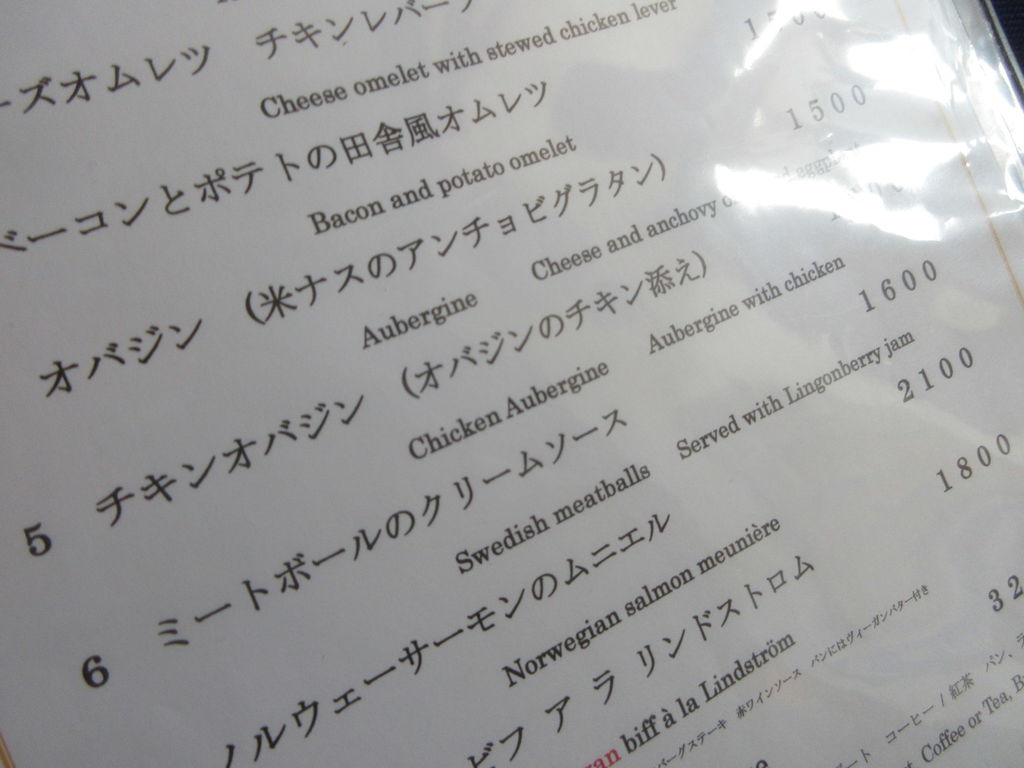 ーズオムレツ チキンレバー
Cheese omelet with stewed chicken lever
ベーコンとポテトの田舎風オムレツ 1500
Bacon and potato omelet
オバジン (米ナスのアンチョビグラタン)
Aubergine Cheese and anchovy
チキンオバジン (オバジンのチキン添え) 1600
Chicken Aubergine Aubergine with chicken
5 ミートボールのクリームソース 2100
Swedish meatballs Served with Lingonberry jam
6 ノルウェーサーモンのムニエル 1800
Norwegian salmon meunière
ビフ ア ラ リンドストロム 32
biff à la Lindström
バーグステーキ 赤ワインソース パンにはヴィーガンバター付き
コーヒー / 紅茶 パン・
Coffee or Tea,